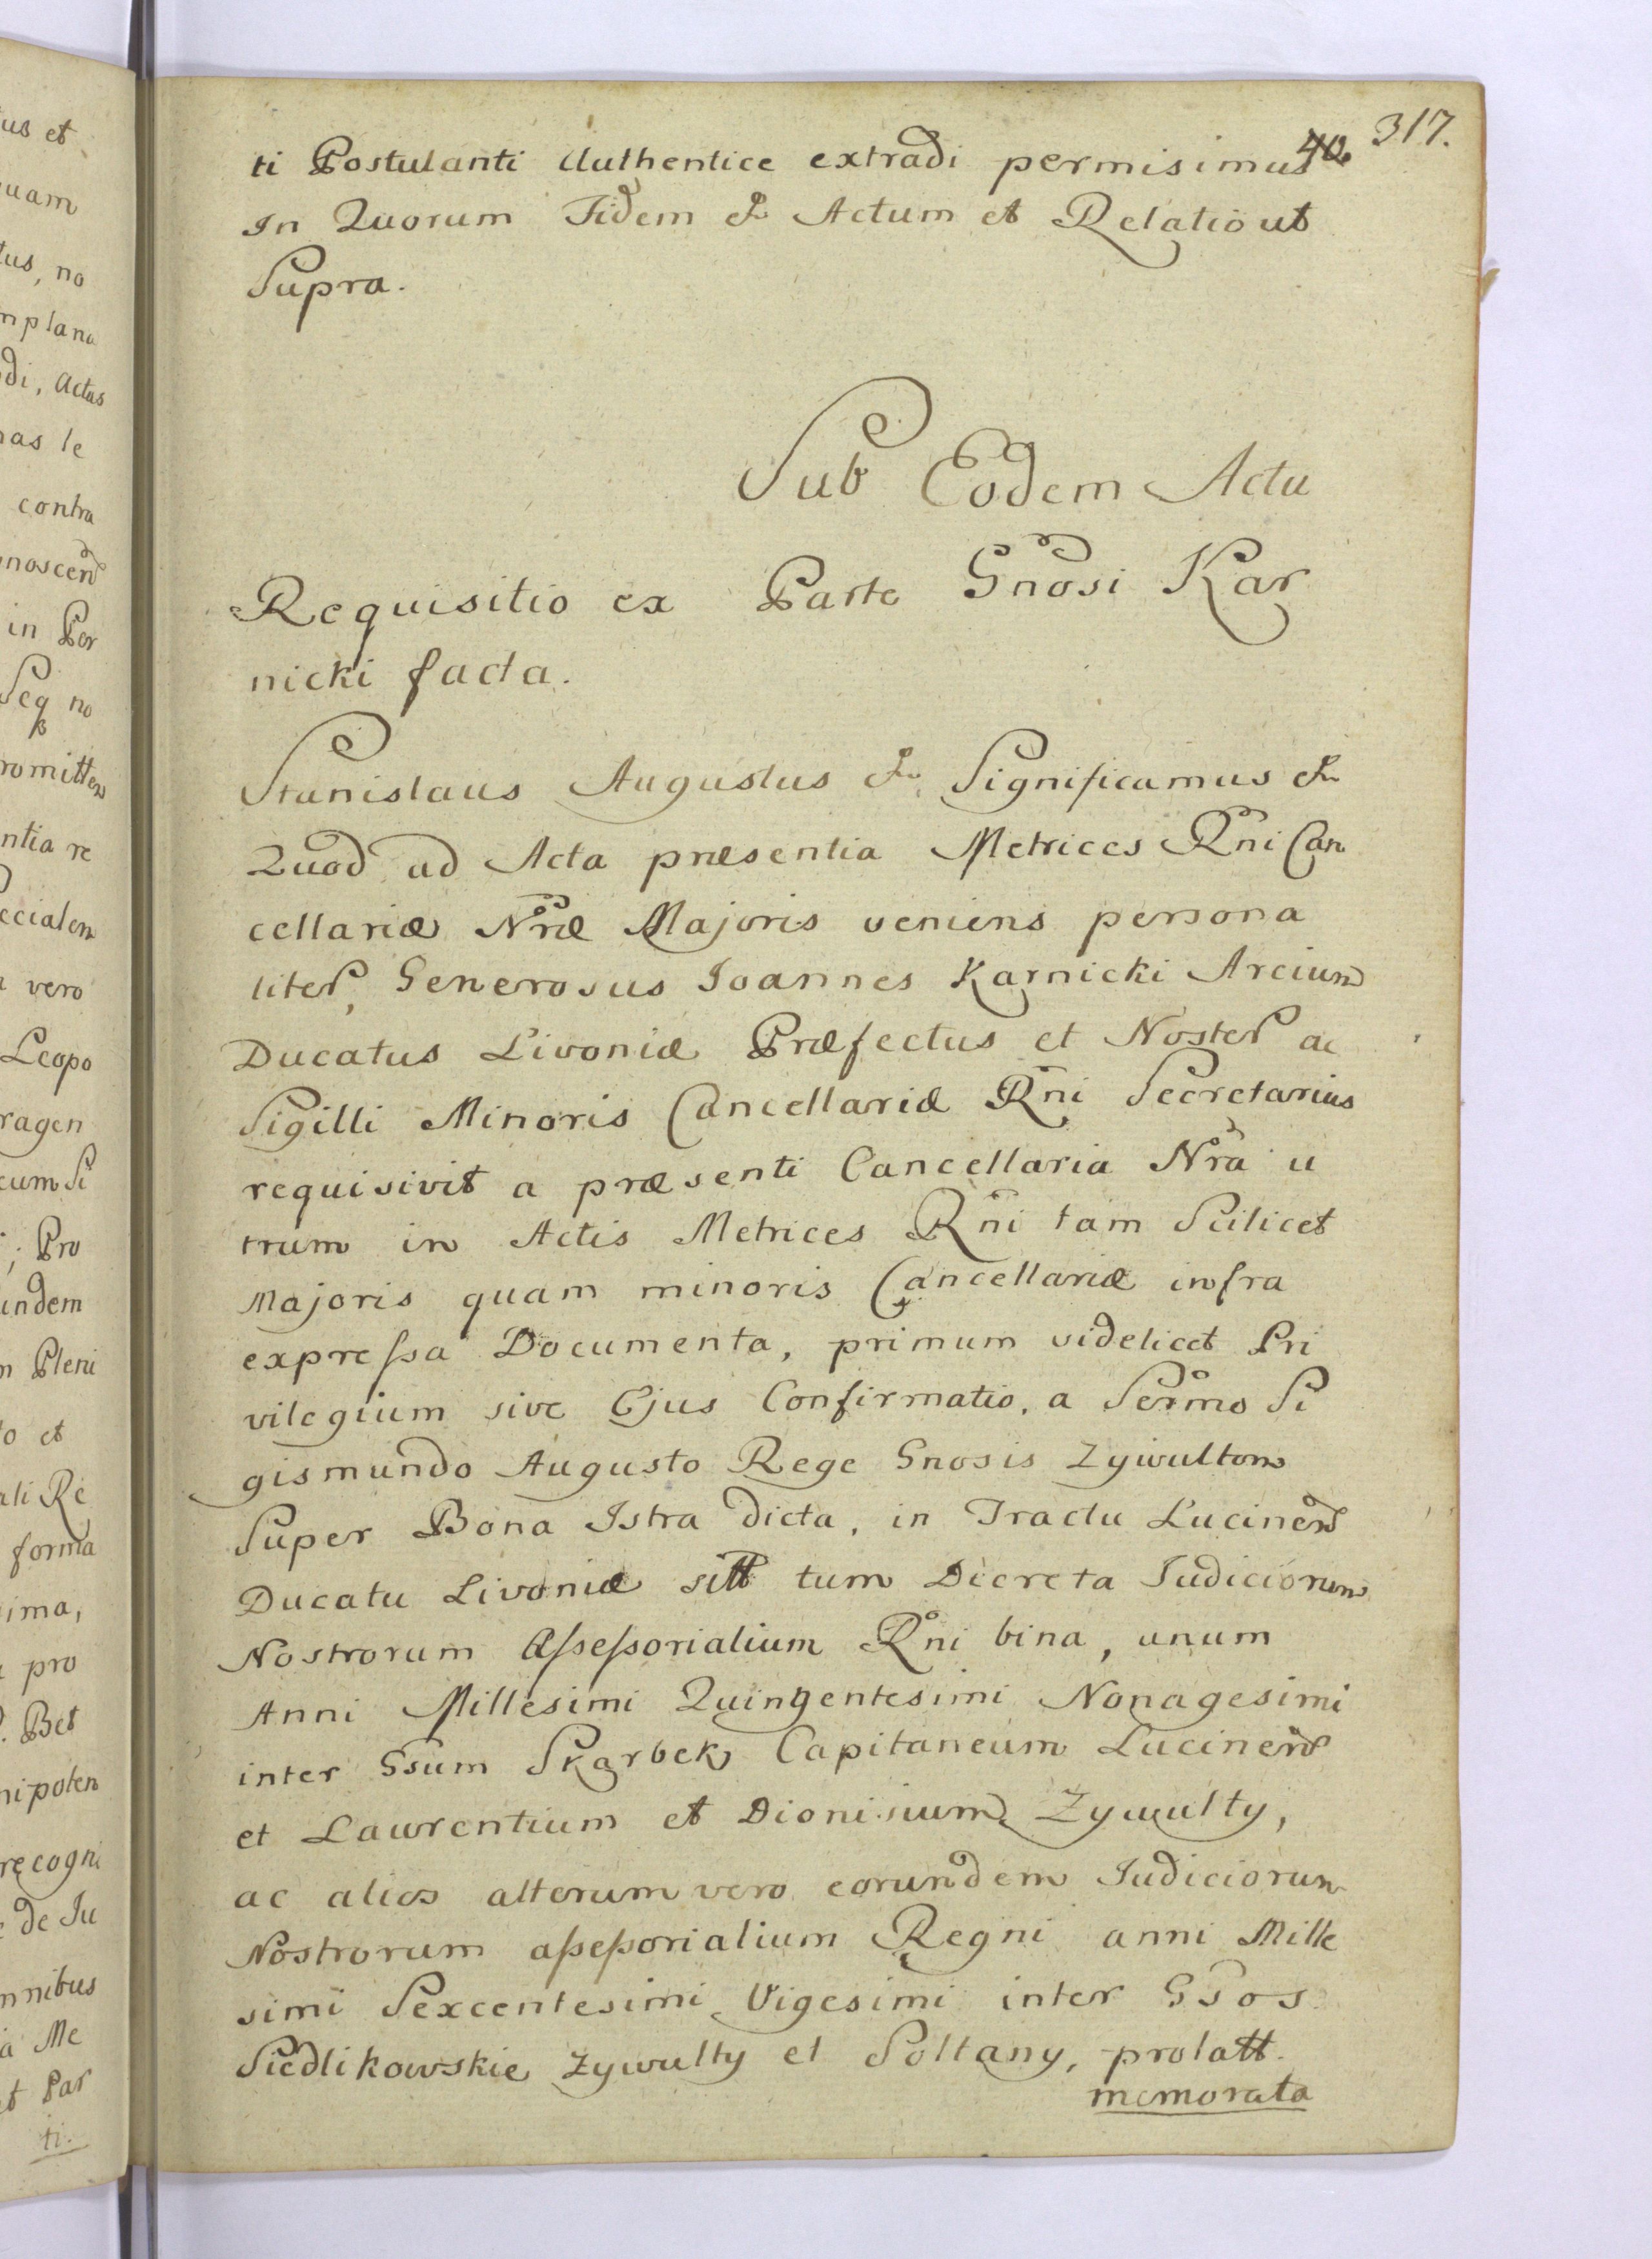 us et
uam
tus, no
mplana
di, Actas
nas le
contra
gnoscend
in Per
Seq no
romitten
ntia re
ecialem
a vero
Leopo
ragen
cum Si
; Pro
undem
m Pleni
o et
ali Re
forma
ima,
a pro
. Bet
nipoten
recogni
e de Ju
mnibus
a Me
et Par
ti.
40. 317.
ti Postulanti Authentice extradi permisimus
In Quorum Fidem & Actum et Relatio ut
Supra.
Sub Eodem Actu
Requisitio ex Parte Gnosi Kar
nicki facta.
Stanislaus Augustus & Significamus &
Quod ad Acta præsentia Metrices Rni Can
cellariæ Nræ Majoris veniens persona
liter, Generosus Joannes Karnicki Arcium
Ducatus Livoniæ Præfectus et Noster ac
Sigilli Minoris Cancellariæ Rni Secretarius
requisivit a præsenti Cancellaria Nra u
trum in Actis Metrices Rni tam Scilicet
Majoris quam minoris Cancellariæ infra
expressa Documenta, primum videlicet Pri
vilegium sive Ejus Confirmatio, a Sermo Si
gismundo Augusto Rege Gnosis Zywultom
Super Bona Istra dicta, in Tractu Lucinen
Ducatu Livoniæ sitt tum Decreta Judiciorum
Nostrorum Assessorialium Rni bina, unum
Anni Millesimi Quingentesimi Nonagesimi
inter Gsum Skarbek Capitaneum Lucinen
et Laurentium et Dionisium Zywulty,
ac alios alterum vero eorundem Judiciorum
Nostrorum assessorialium Regni anni Mille
simi Sexcentesimi Vigesimi inter GSos
Siedlikowskie Zywulty et Soltany, prolatt.
memorata